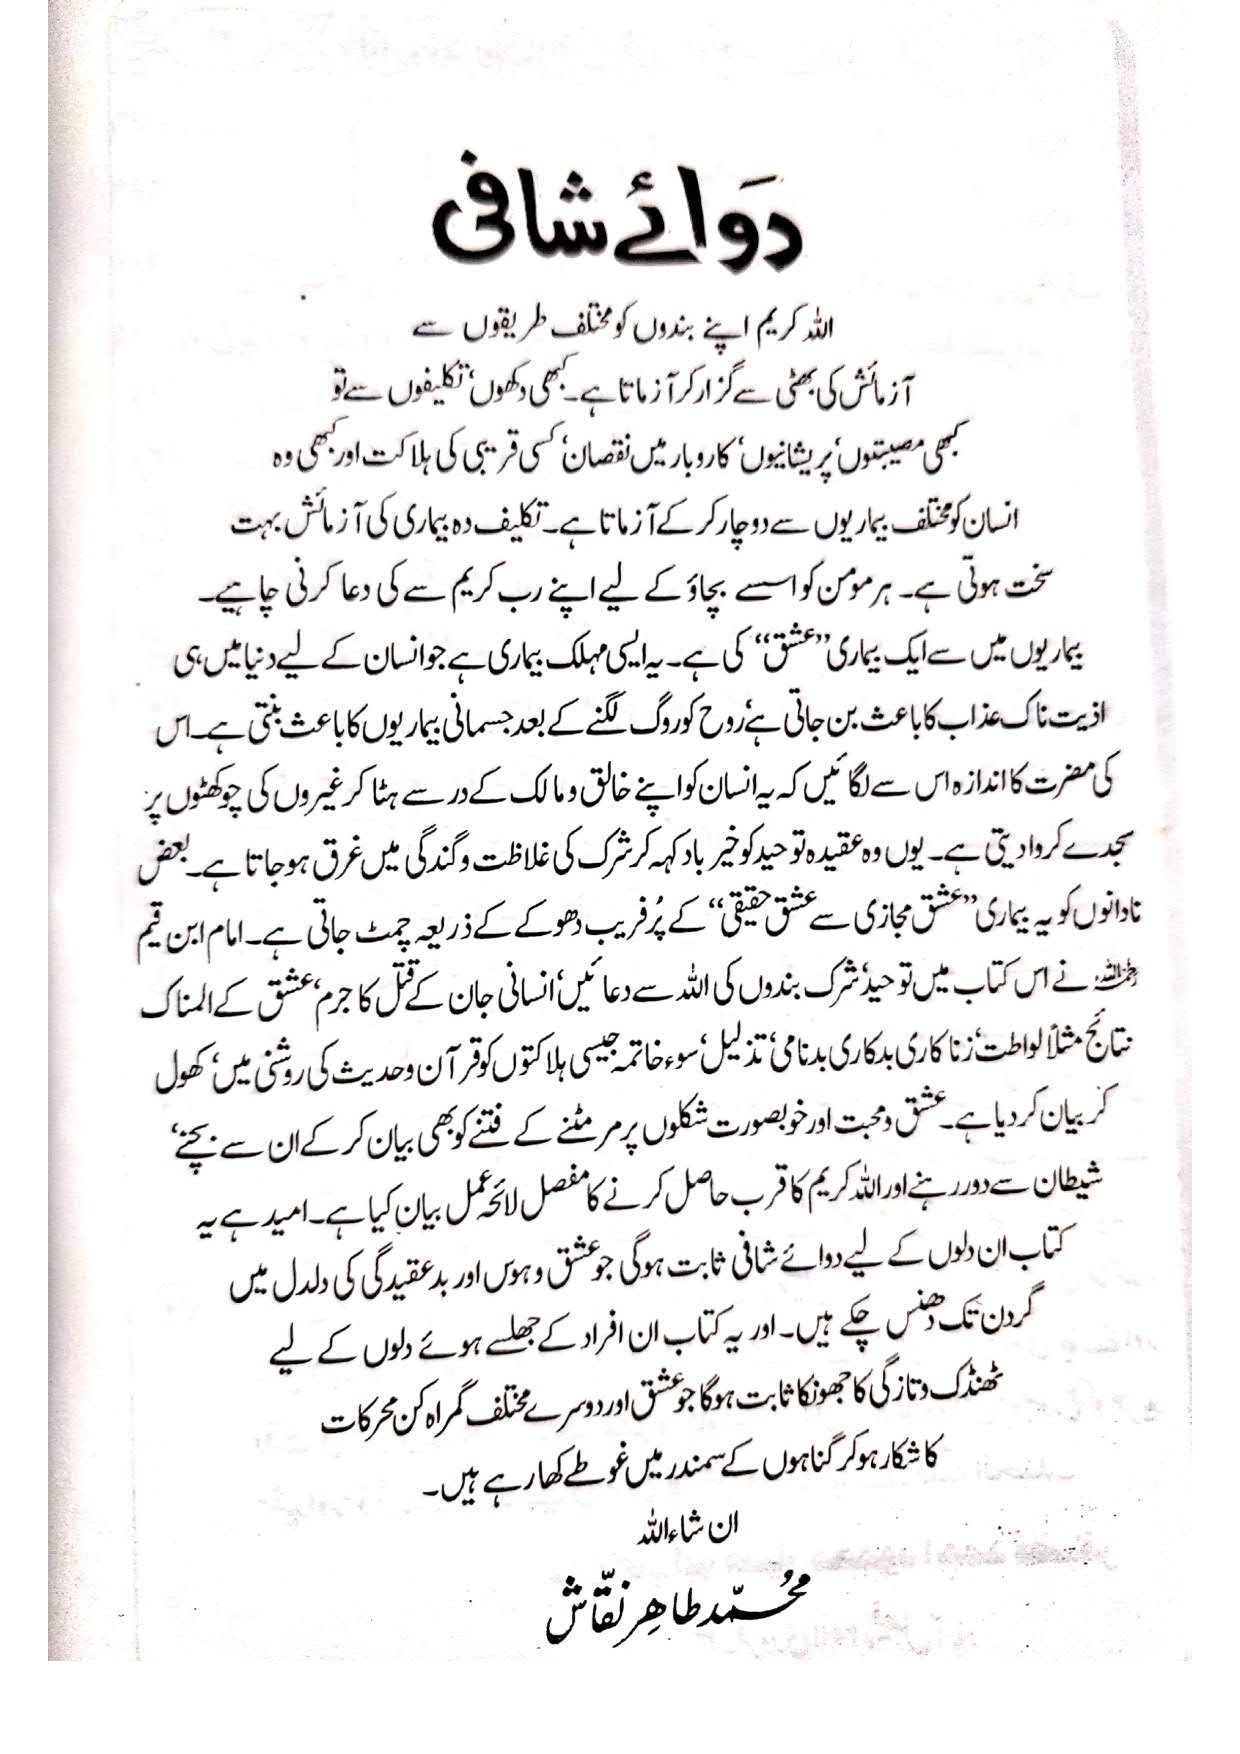 دَوائے شافی
اللہ کریم اپنے بندوں کو مختلف طریقوں سے
آزمائش کی بھٹی سے گزار کر آزماتا ہے۔ کبھی دکھوں‘ تکلیفوں سے تو
کبھی مصیبتوں‘ پریشانیوں‘ کاروبار میں نقصان‘ کسی قریبی کی ہلاکت اور کبھی وہ
انسان کو مختلف بیماریوں سے دوچار کر کے آزماتا ہے۔ تکلیف دہ بیماری کی آزمائش بہت
سخت ہوتی ہے۔ ہر مومن کو اسسے بچاؤ کے لیے اپنے رب کریم سے کی دعا کرنی چاہیے۔
بیماریوں میں سے ایک بیماری ”عشق“ کی ہے۔ یہ ایسی مہلک بیماری ہے جو انسان کے لیے دنیا میں ہی
اذیت ناک عذاب کا باعث بن جاتی ہے‘ روح کو روگ لگنے کے بعد جسمانی بیماریوں کا باعث بنتی ہے۔ اس
کی مضرت کا اندازہ اس سے لگائیں کہ یہ انسان کو اپنے خالق و مالک کے در سے ہٹا کر غیروں کی چوکھٹوں پر
سجدے کروا دیتی ہے۔ یوں وہ عقیدہ توحید کو خیر باد کہہ کر شرک کی غلاظت و گندگی میں غرق ہو جاتا ہے۔ بعض
نادانوں کو یہ بیماری ”عشق مجازی سے عشق حقیقی“ کے پُر فریب دھوکے کے ذریعہ چمٹ جاتی ہے۔ امام ابن قیم
رحمہ اللہ نے اس کتاب میں توحید‘ شرک بندوں کی اللہ سے دعائیں‘ انسانی جان کے قتل کا جرم‘ عشق کے المناک
نتائج مثلاً لواطت‘ زنا کاری بدکاری بدنامی‘ تذلیل‘ سوء خاتمہ جیسی ہلاکتوں کو قرآن و حدیث کی روشنی میں‘ کھول
کر بیان کر دیا ہے۔ عشق و محبت اور خوبصورت شکلوں پر مر مٹنے کے فتنے کو بھی بیان کر کے ان سے بچنے‘
شیطان سے دور رہنے اور اللہ کریم کا قرب حاصل کرنے کا مفصل لائحہ عمل بیان کیا ہے۔ امید ہے یہ
کتاب ان دلوں کے لیے دوائے شافی ثابت ہوگی جو عشق و ہوس اور بد عقیدگی کی دلدل میں
گردن تک دھنس چکے ہیں۔ اور یہ کتاب ان افراد کے جھلسے ہوئے دلوں کے لیے
ٹھنڈک و تازگی کا جھونکا ثابت ہوگا جو عشق اور دوسرے مختلف گمراہ کن محرکات
کا شکار ہو کر گناہوں کے سمندر میں غوطے کھا رہے ہیں۔
ان شاء اللہ
محمّد طاہر نقّاش